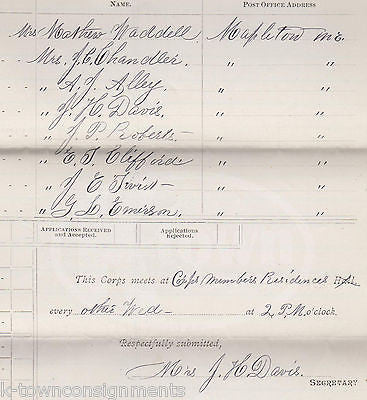 NAME. POST OFFICE ADDRESS
Mrs Mathew Waddell Mapleton Me.
Mrs. J. C. Chandler " "
" A. J. Alley " "
" J. H. Davis, " "
" J. P. Roberts " "
" E. T. Clifford " "
" J E Twist " "
" G. L. Emerson. " "
APPLICATIONS RECEIVED and Accepted. Applications Rejected.
This Corps meets at Members Residences Hall
every other Wed at 2 P.M. o'clock.
Respectfully submitted,
Mrs J. H. Davis.
SECRETARY
k-townconsignments